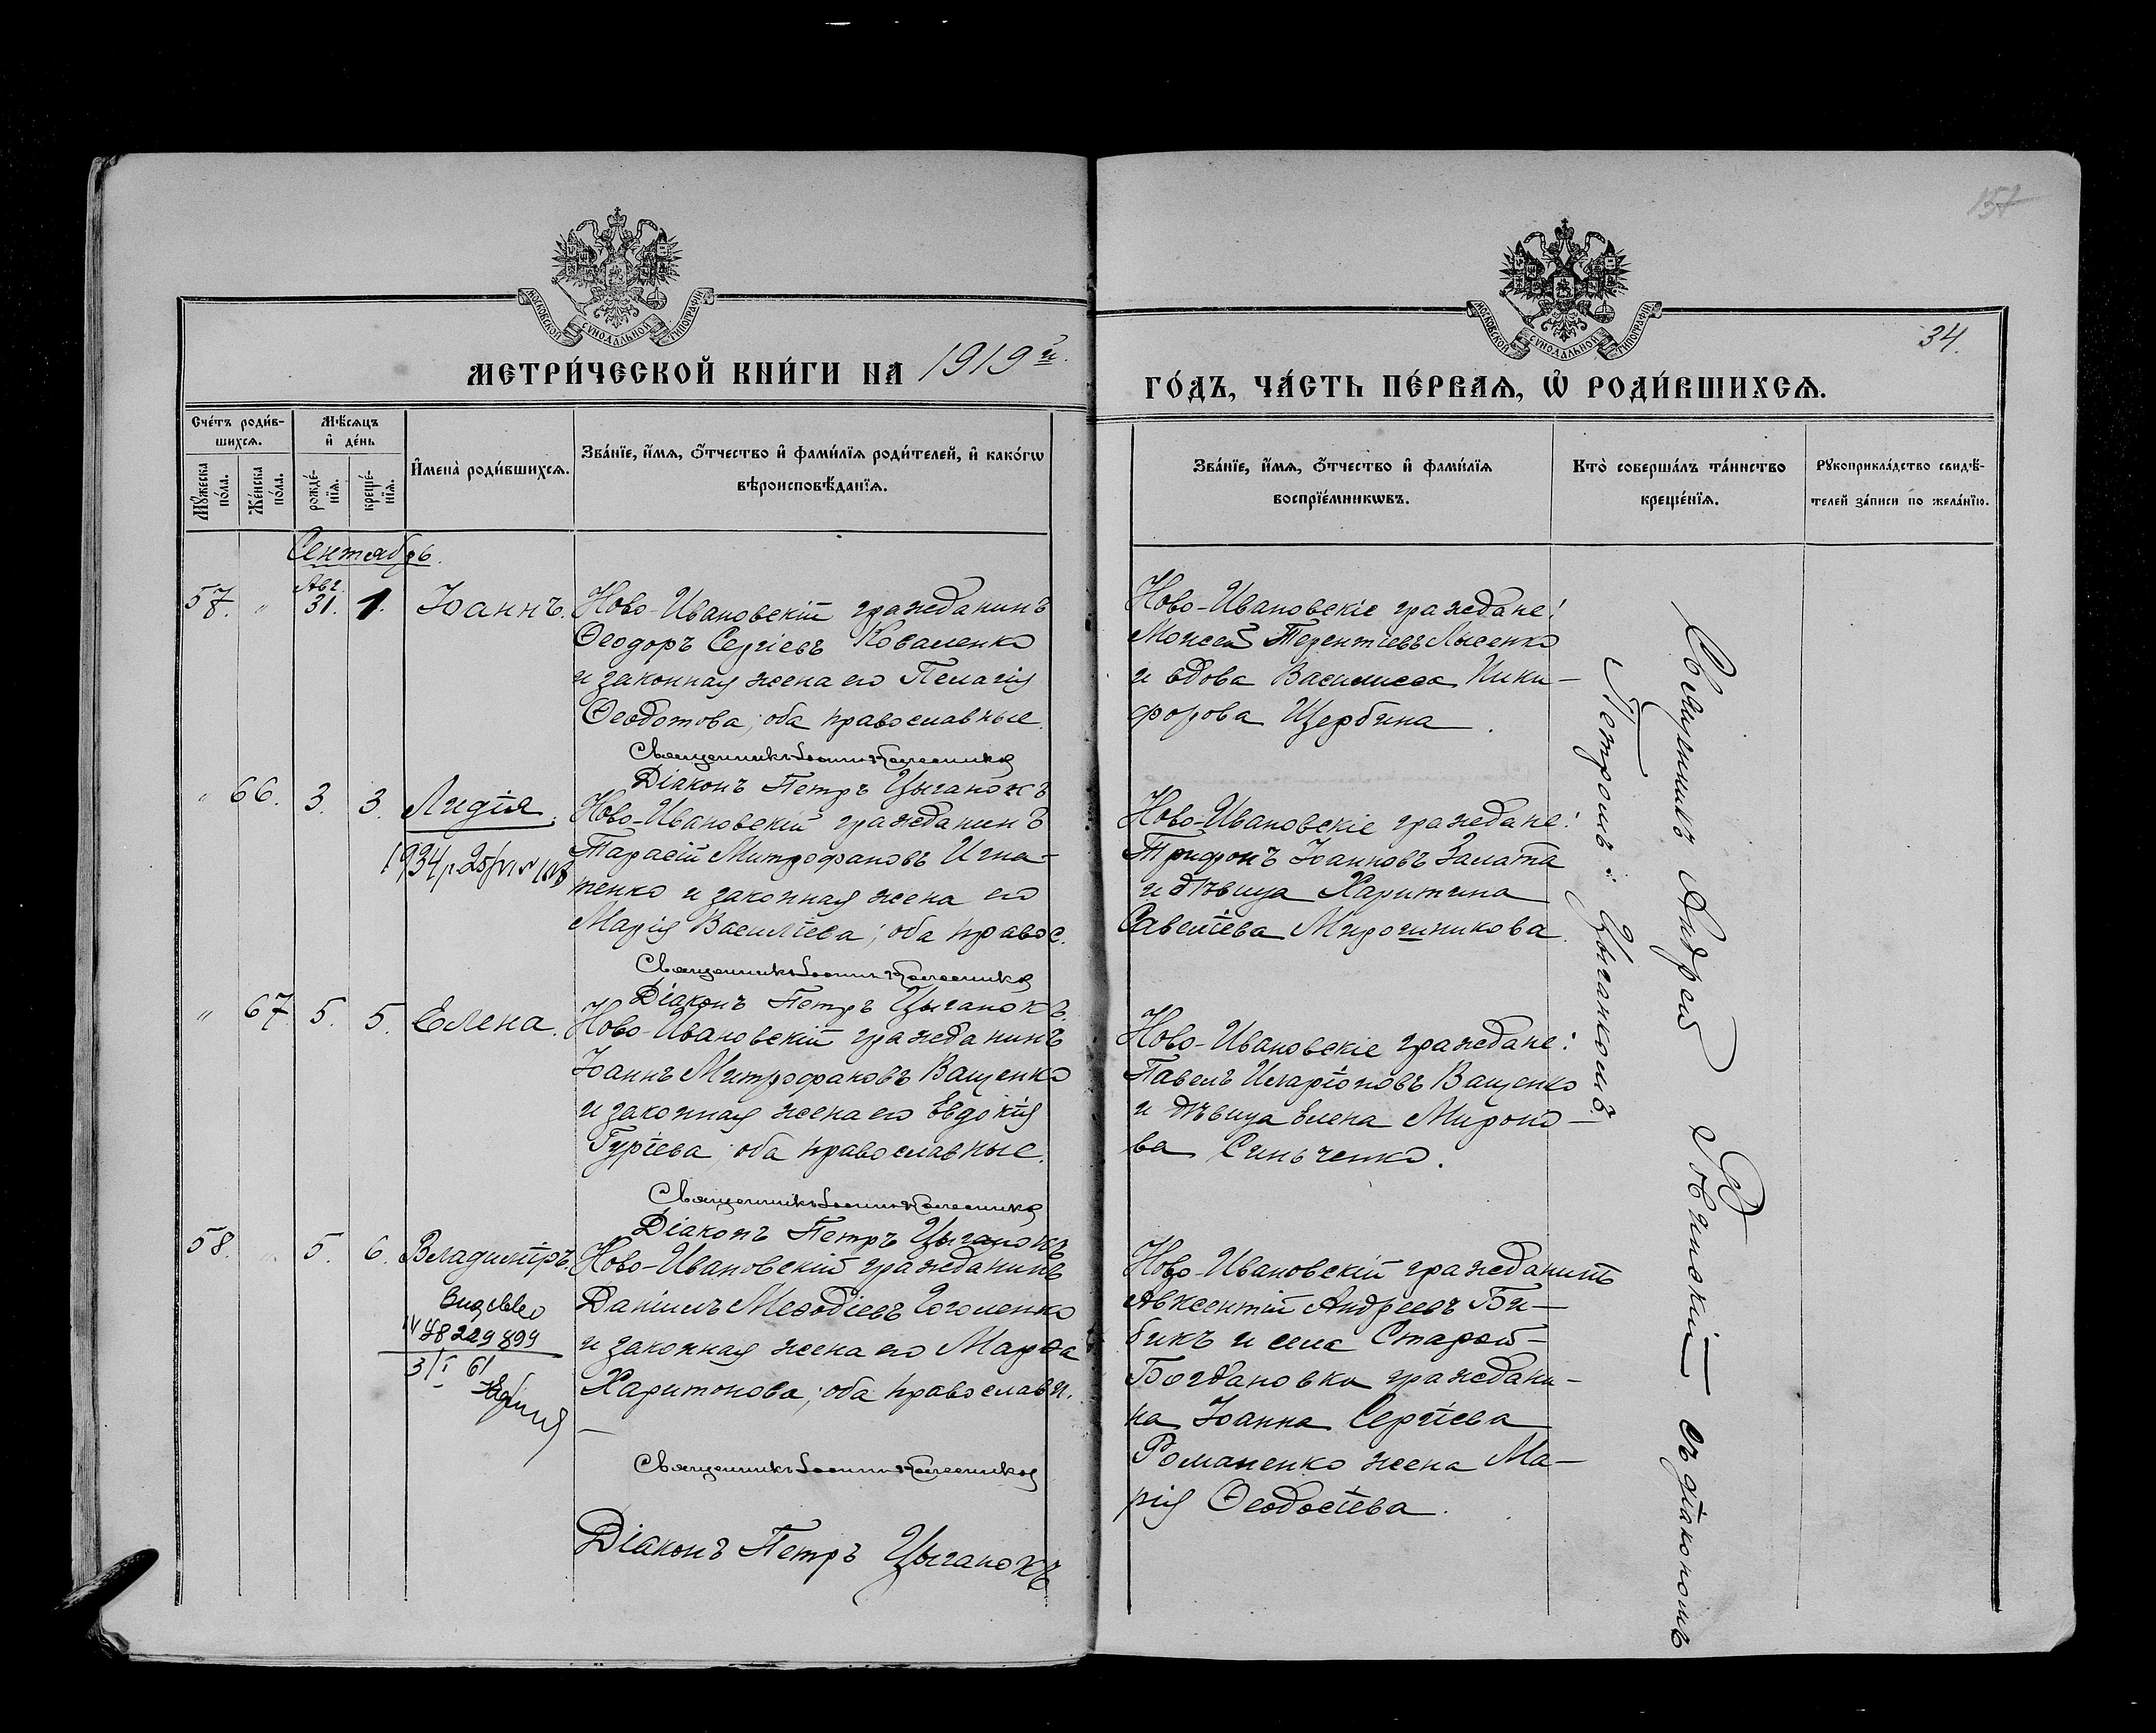 157
МОСКОВСКОЙ СѴНОДАЛЬНОЙ ТИПОГРАФІИ
МОСКОВСКОЙ СѴНОДАЛЬНОЙ ТИПОГРАФІИ
34.
МЕТРИ́ЧЕСКОЙ КНИ́ГИ НА 1919й.
ГО́ДЪ, ЧА́СТЬ ПЕ́РВАѦ, Ѡ҆ РОДИ́ВШИХСѦ.
Сче́тъ роди́в-
шихсѧ.
Мꙋ́жеска по́ла.
Же́нска по́ла.
Мѣ́сѧцъ
и҆ де́нь
рожде́-
нїѧ.
креще́-
нїѧ.
И҆мена̀ роди́вшихсѧ.
Зва́нїе, и҆́мѧ, ѻ҆́тчество и҆ фами́лїѧ роди́телей, и҆ како́гѡ
вѣроисповѣ́данїѧ.
Зва́нїе, и҆́мѧ, ѻ҆́тчество и҆ фами́лїѧ
воспрїе́мникѡвъ.
Кто̀ соверша́лъ та́инство
креще́нїѧ.
Рꙋкоприкла́дство свидѣ́-
телей за́писи по жела́нїю.
Сентябрь.
57. " Авг. 31. 1. Іоаннъ.
Ново-Ивановскій гражданинъ
Ѳеодоръ Сергіевъ Коваленко
и законная жена его Пелагія
Ѳеодотова; оба православные.
Священникъ Іоаннъ
Діаконъ Петръ Цыганокъ
Ново-Ивановскіе граждане:
Моисей Терентіевъ Лысенко
и вдова Василисса Ники-
форова Щербина.
" 66. 3. 3. Лидія.
1934 р. 25/VIII
Ново-Ивановскій гражданинъ
Тарасій Митрофановъ Игна-
тенко и законная жена его
Марія Василіева; оба правос.
Священникъ Іоаннъ
Діаконъ Петръ Цыганокъ.
Ново-Ивановскіе граждане:
Трифонъ Іоанновъ Залата
и дѣвица Харитина
Савеліева Мирошникова.
" 67. 5. 5. Елена.
Ново-Ивановскій гражданинъ
Іоаннъ Митрофановъ Ващенко
и законная жена его Евдокія
Гуріева; оба православные.
Священникъ Іоаннъ
Діаконъ Петръ Цыганокъ
Ново-Ивановскіе граждане:
Павелъ Иларіоновъ Ващенко
и дѣвица Елена Мироно-
ва Синьченко.
58. " 5. 6. Владиміръ.
Видано
IV 48 229 899
3/I 61
Ново-Ивановскій гражданинъ
Даніилъ Меѳодіевъ Гоголенко
и законная жена его Марѳа
Харитонова; оба православн.
Священникъ Іоаннъ
Діаконъ Петръ Цыганокъ
Ново-Ивановскій гражданинъ
Авксентій Андреевъ Би-
бикъ и села Старой-
Богдановки граждани-
на Іоанна Сергіева
Романенко жена Ма-
рія Ѳеодосіева.
Священникъ Андрей Ровинскій съ діакономъ
Петромъ Цыганкомъ.